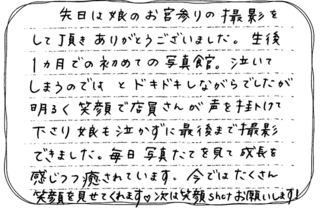 先日は娘のお宮参りの撮影を
して頂きありがとうございました。生後
1ヵ月での初めての写真館。泣いて
しまうのでは とドキドキしながらでしたが
明るく笑顔で店員さんが声を掛けて
下さり娘も泣かずに最後まで撮影
できました。毎日写真たてを見て成長を
感じつつ癒されています。今ではたくさん
笑顔を見せてくれます♡次は笑顔shotお願いします!